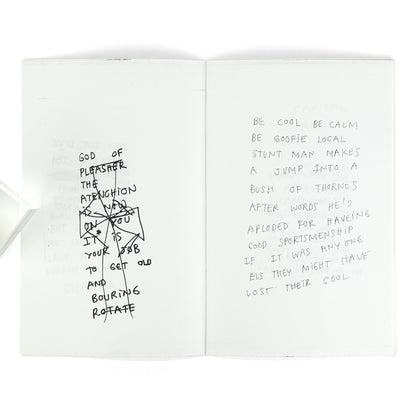 GOD OF
PLEASHER
THE
ATENCHION
IS NOW
ON YOU
IT IS
YOUR JOB
TO GET OLD
AND
BOURING
ROTATE
BE COOL BE CALM
BE GOOFIE LOCAL
STUNT MAN MAKES
A JUMP INTO A
BUSH OF THORNES
AFTER WORDS HE'S
APLODED FOR HAVEING
GOOD SPORTSMENSHIP
IF IT WAS ANY ONE
ELS THEY MIGHT HAVE
LOST THEIR COOL